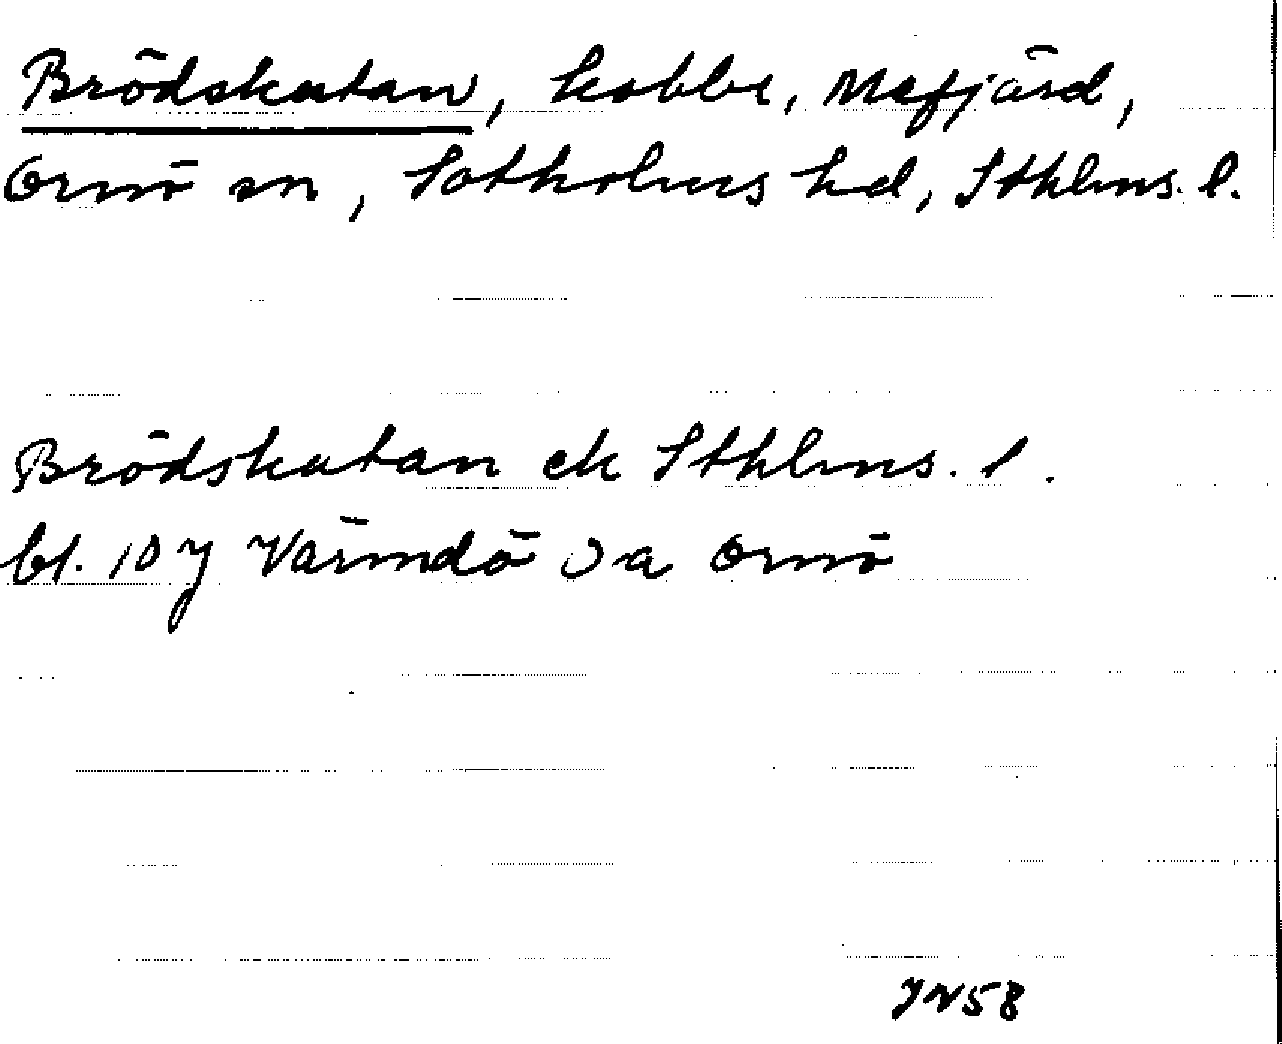 Brödskatan, kobbe, Mefjärd,
Ornö sn, Sotholms hd, Sthlms. l.
Brödskatan ek Sthlms. l.
bl. 10 Värmdö o a Ornö
58